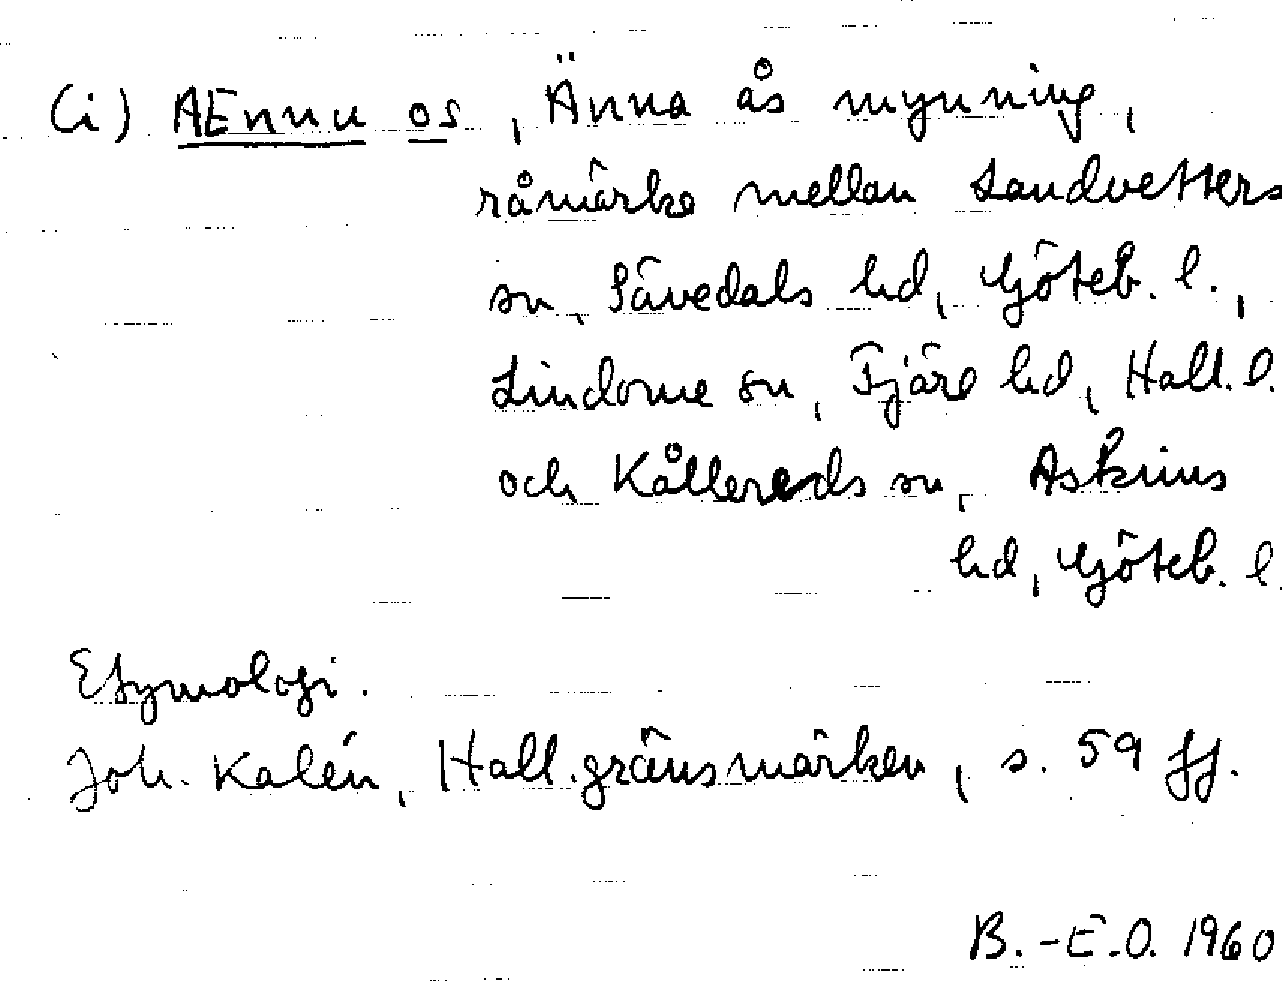 (i) AEnnu os, Änna ås mynning,
råmärke mellan Landvetters
sn, Sävedals hd, Göteb. l.,
Lindome sn, Fjäre hd, Hall. l.
och Kållereds sn, Askims
hd, Göteb. l.
Etymologi.
Joh. Kalén, Hall. gränsmärken, s. 59 ff.
B.-E.O. 1960